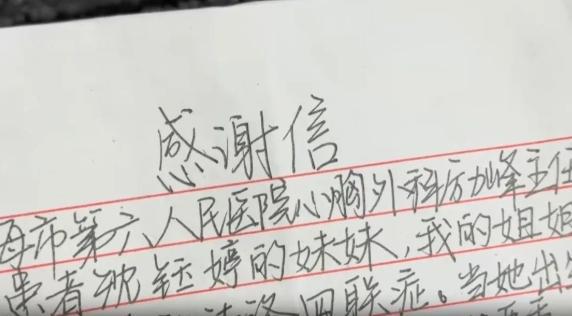 感谢信
海市第六人民医院心胸外科厉加峰主任
患者沈钰婷的妹妹,我的姐姐
四联症。当她出生